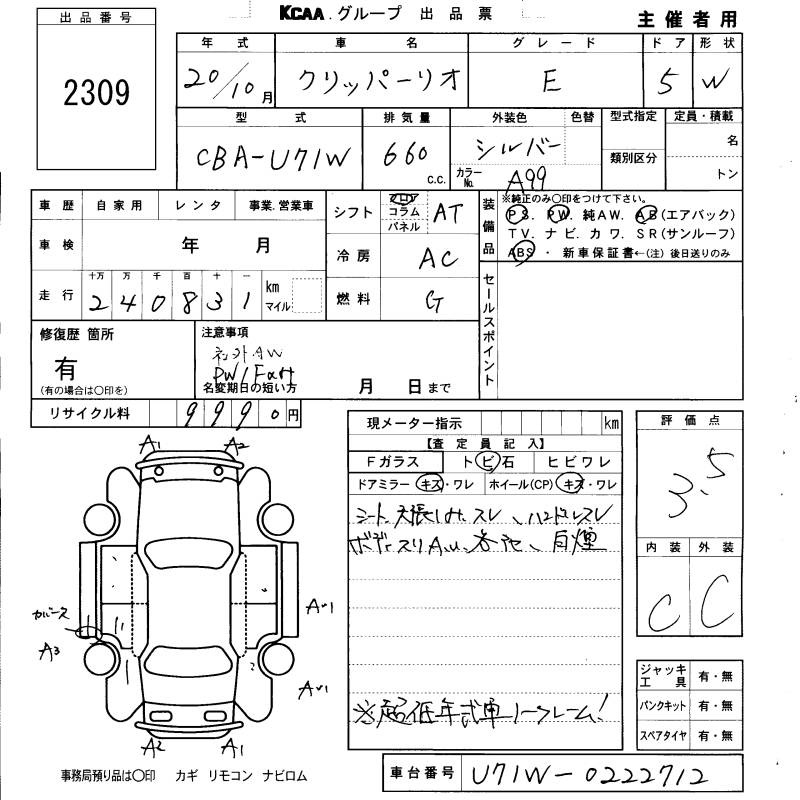 KCAA.グループ 出品票
主催者用
出品番号
2309
年式 車名 グレード ドア 形状
20/10月 クリッパーリオ E 5 W
型式 排気量 外装色 色替 型式指定 定員・積載
CBA-U71W 660 C.C. シルバー
名
類別区分
カラーNo. A99 トン
車歴 自家用 レンタ 事業.営業車
車検 年 月
走行 十万 万 千 百 十 一
2 4 0 8 3 1 km マイル
シフト フロア コラム パネル AT
冷房 AC
燃料 G
装備品
※純正のみ〇印をつけて下さい。
PS. PW. 純AW. AB(エアバック)
TV. ナビ. カワ. SR(サンルーフ)
ABS ・ 新車保証書←(注) 後日送りのみ
セールスポイント
修復歴 箇所
有
(有の場合は〇印を)
注意事項
AW
名変期日の短い方 月 日まで
リサイクル料 9990円
現メーター指示 km
【査定員記入】
Fガラス トビ石 ヒビワレ
ドアミラー キズ・ワレ ホイール(CP) キズ・ワレ
シート、天張しみ、スレ、ハンドルスレ
ボディスリ
※超低年式車ノークレーム!
評価点
3.5
内装 外装
C C
ジャッキ工具 有・無
パンクキット 有・無
スペアタイヤ 有・無
A1 A2
A3
A2 A1
事務局預り品は〇印 カギ リモコン ナビロム
車台番号 U71W-0222712